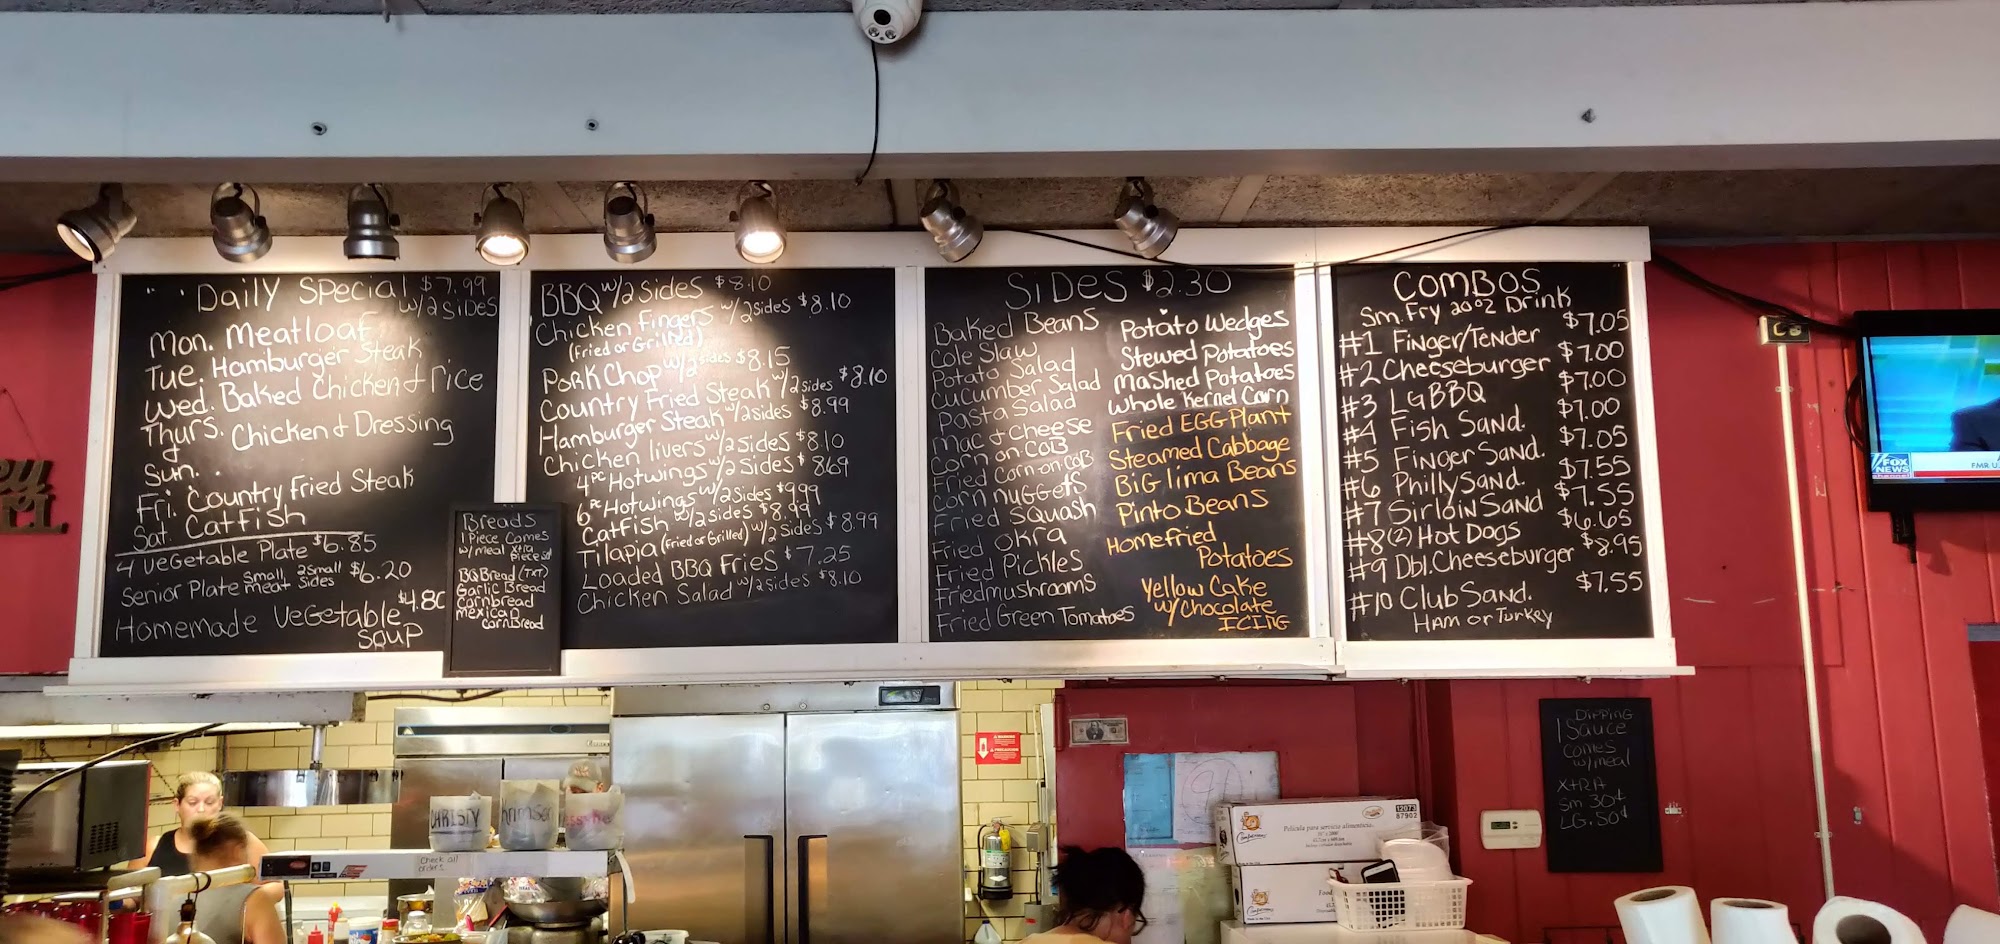 Daily Special $7.99
w/2 Sides
Mon. Meatloaf
Tue. Hamburger Steak
Wed. Baked Chicken & rice
Thurs. Chicken & Dressing
Sun.
Fri. Country Fried Steak
Sat. Catfish
4 Vegetable Plate $6.85
Senior Plate Small meat 2 small Sides $6.20
Homemade Vegetable $4.80
Soup
Breads
1 Piece Comes
w/meal xtra
BQ Bread (TXT)
Garlic Bread
Cornbread
mexican
cornbread
BBQ w/2 Sides $8.10
Chicken Fingers w/2 sides $8.10
(Fried or Grilled)
Pork Chop w/2 sides $8.15
Country Fried Steak w/2 sides $8.10
Hamburger Steak w/2 sides $8.99
Chicken livers w/2 Sides $8.10
4 pc Hotwings w/2 Sides $8.69
6 pc Hotwings w/2 Sides $9.99
Catfish w/2 sides $8.99
Tilapia (Fried or Grilled) w/2 Sides $8.99
Loaded BBQ Fries $7.25
Chicken Salad w/2 sides $8.10
Sides $2.30
Baked Beans
Cole Slaw
Potato Salad
Cucumber Salad
Pasta Salad
Mac & Cheese
Corn on COB
Fried Corn-on-COB
Corn nuggets
Fried Squash
Fried Okra
Fried Pickles
Fried mushrooms
Fried Green Tomatoes
Potato Wedges
Stewed Potatoes
Mashed Potatoes
Whole Kernel Corn
Fried EGG Plant
Steamed Cabbage
BiG lima Beans
Pinto Beans
Homefried
Potatoes
Yellow Cake
w/Chocolate
ICING
COMBOS
Sm. Fry 20oz Drink
#1 Finger/Tender $7.05
#2 Cheeseburger $7.00
#3 LG BBQ $7.00
#4 Fish Sand. $7.00
#5 Finger Sand. $7.05
#6 Philly Sand. $7.55
#7 Sirloin Sand $7.55
#8 (2) Hot Dogs $6.65
#9 Dbl. Cheeseburger $8.95
#10 Club Sand. $7.55
Ham or Turkey
FOX
NEWS
FMR U
Dipping
1 Sauce
comes
w/meal
XTRA
Sm 30¢
LG. 50¢
CHRISTY
Check all
orders
Película para servicio alimenticio
12073
87902